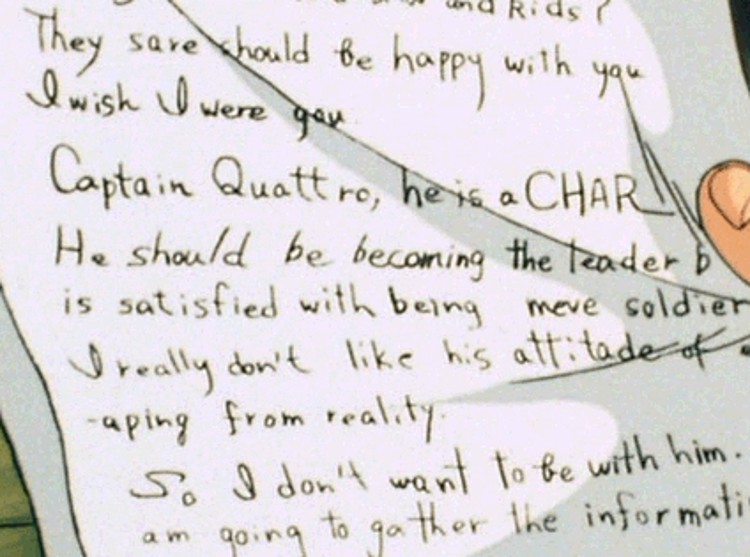 and kids?
They sare should be happy with you
I wish I were you
Captain Quattro, he is a CHAR!
He should be becoming the leader b
is satisfied with being meve soldier
I really don't like his attitade of
-aping from reality.
So I don't want to be with him.
am going to gather the informati